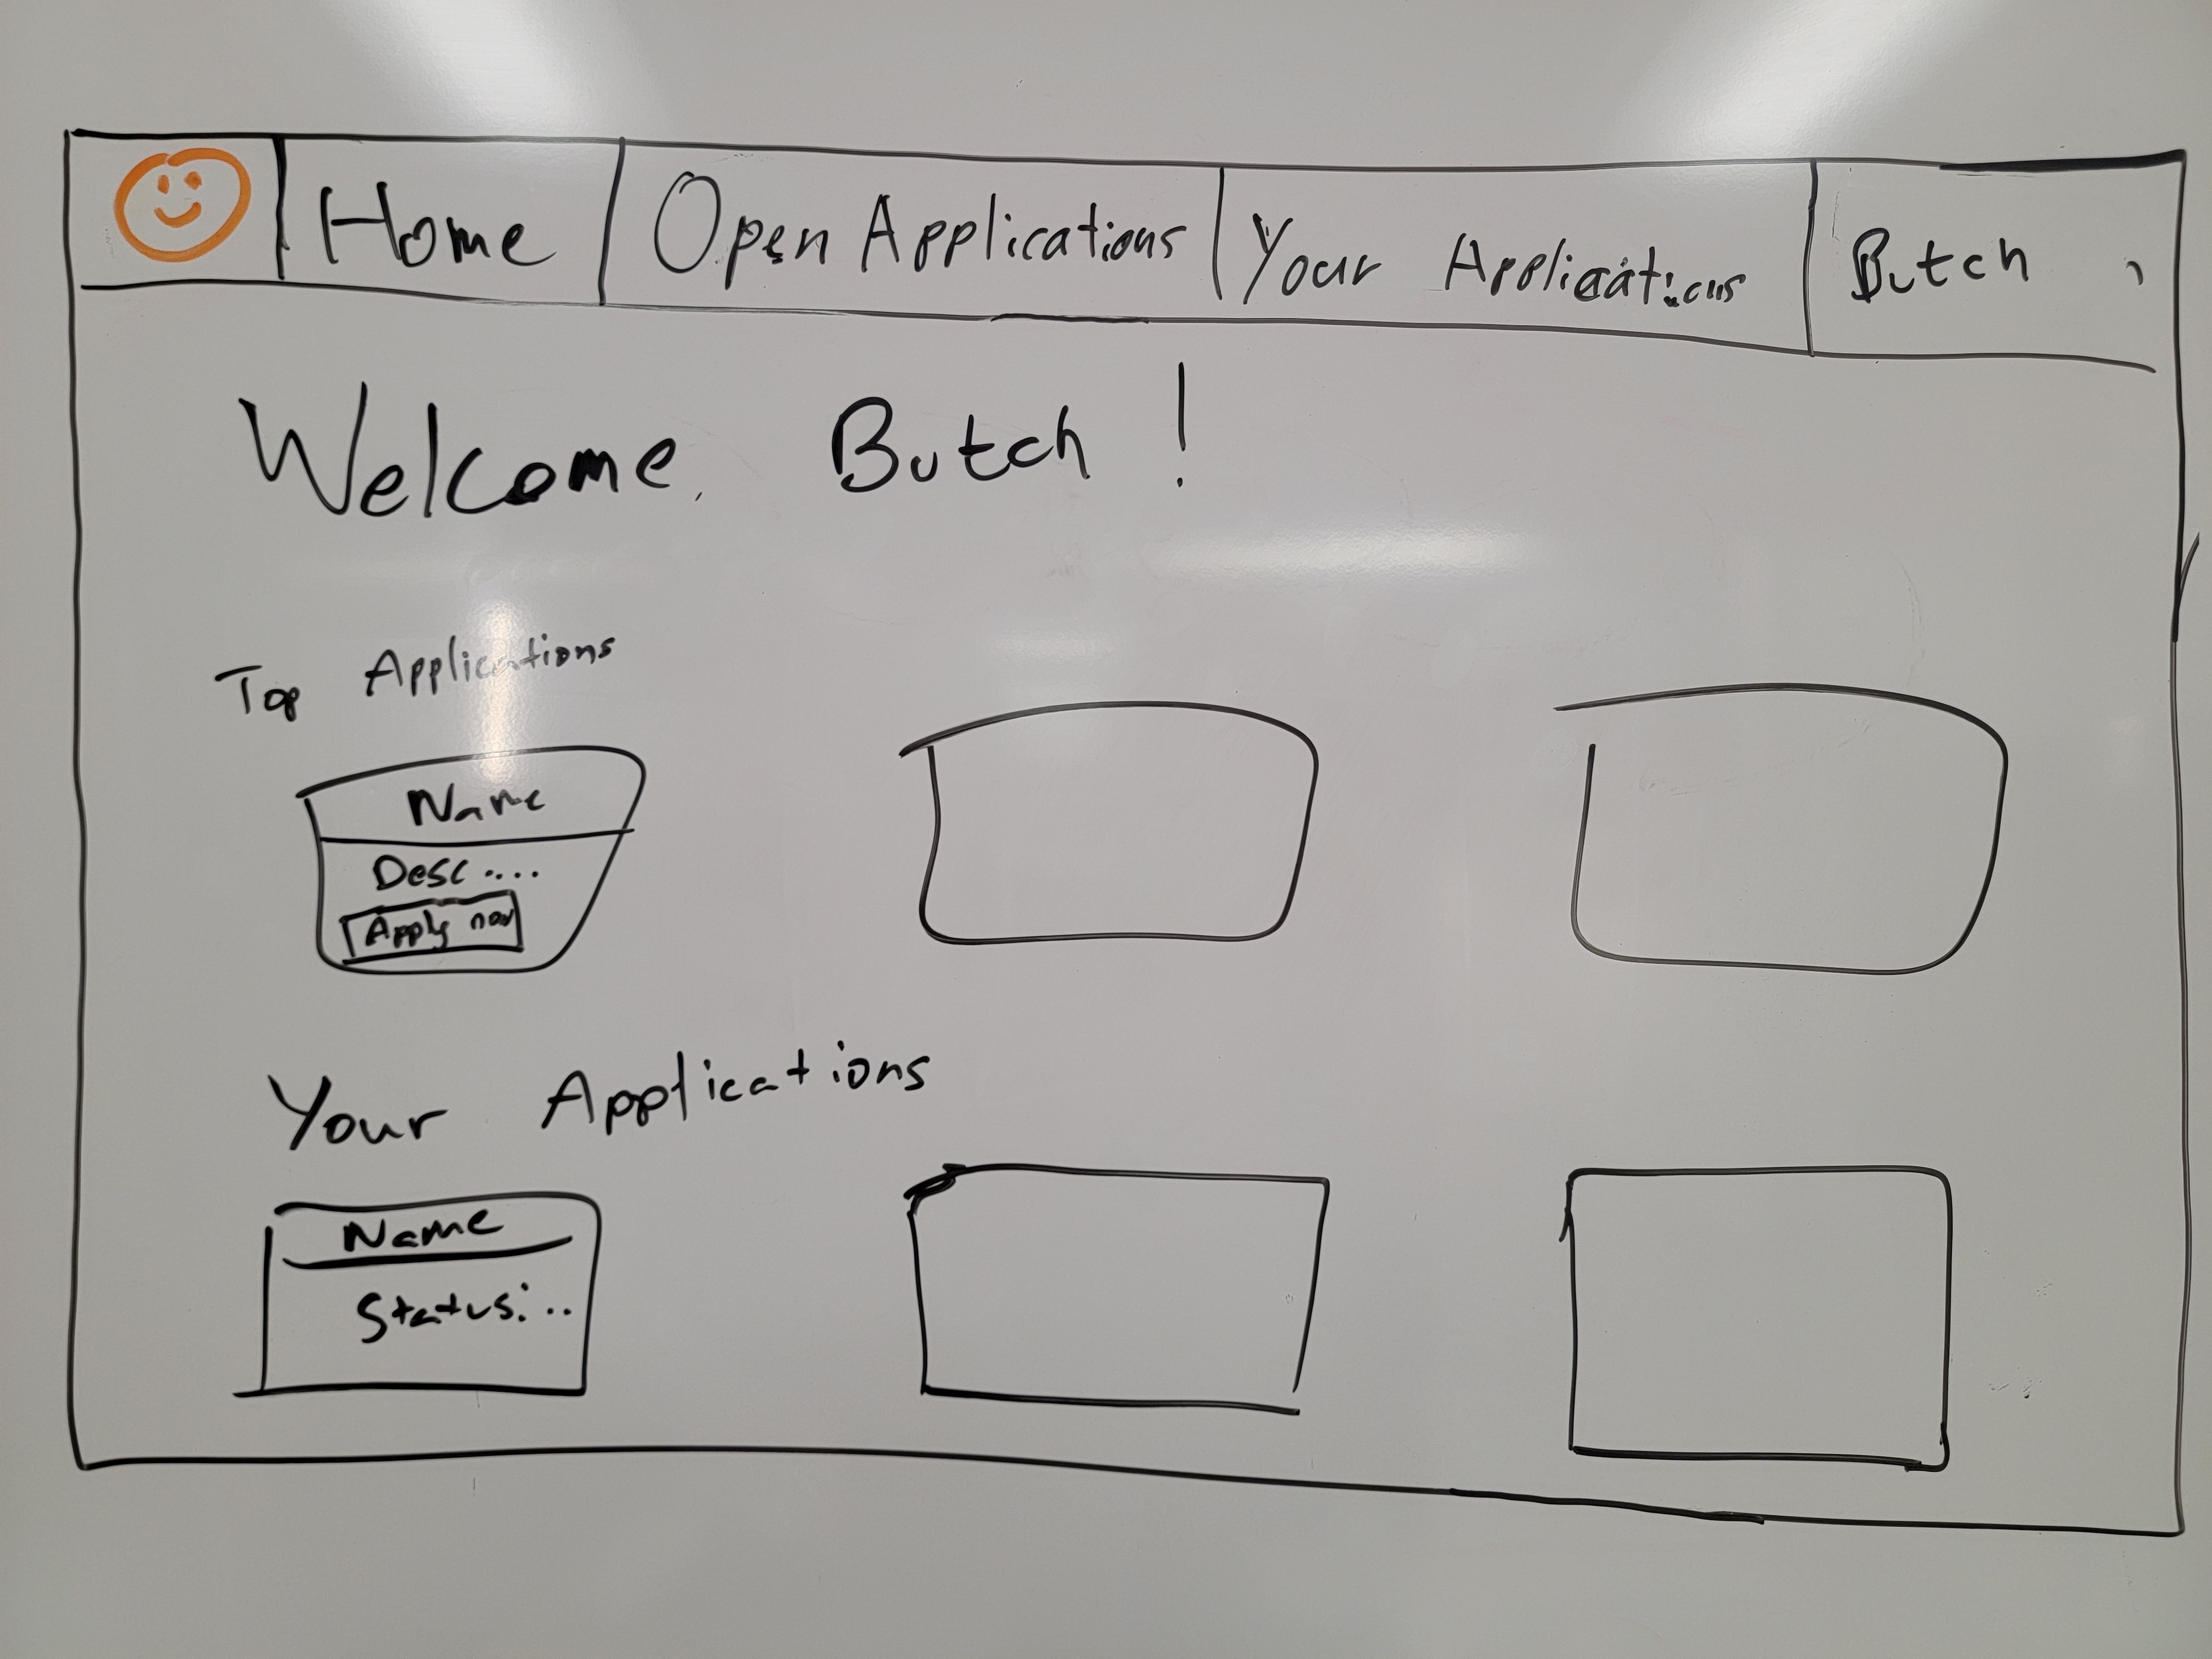 Home Open Applications Your Applications Butch
Welcome, Butch!
Top Applications
Name
Desc....
Apply now
Your Applications
Name
Status:..